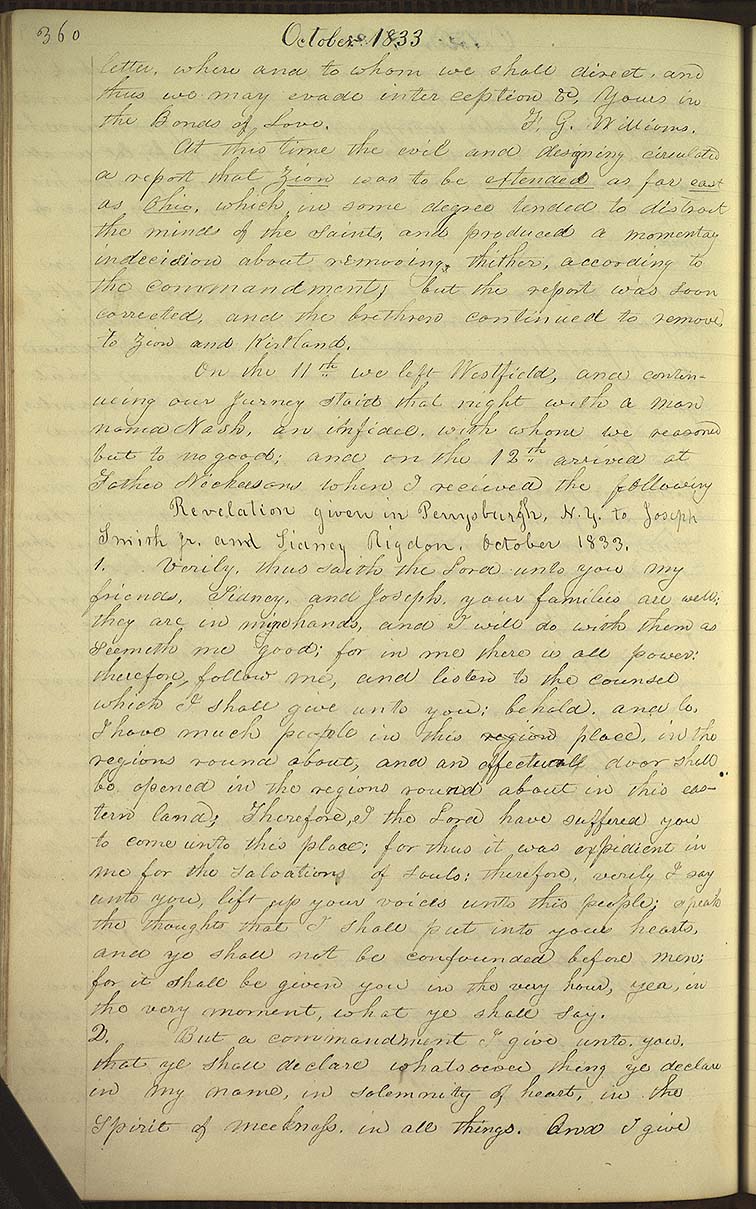 360
October 1833
letter, where and to whom we shall direct, and
thus we may evade interception &c. Yours in
the Bonds of Love. F. G. Williams.
At this time the evil and designing circulated
a report that Zion was to be extended as far east
as Ohio, which in some degree tended to distract
the minds of the Saints, and produced a momentary
indecision about removing thither, according to
the commandment; but the report was soon
corrected, and the brethren continued to remove,
to Zion and Kirtland.
On the 11th we left Westfield, and contin-
uing our Jurney staid that night with a man
named Nash, an infidel, with whom we reasoned
but to no good; and on the 12th arrived at
Father Nickersons when I received the following
Revelation given in Perrysburgh, N. Y. to Joseph
Smith Jr. and Sidney Rigdon. October 1833.
1. Verily, thus saith the Lord unto you my
friends, Sidney, and Joseph, your families are well;
they are in mine hands, and I will do with them as
seemeth me good; for in me there is all power:
therefore, follow me, and listen to the counsel
which I shall give unto you; behold, and lo,
I have much people in this region place, in the
regions round about, and an effectual door shall
be opened in the regions round about in this eas-
tern land; Therefore, I the Lord have suffered you
to come unto this place; for thus it was expidient in
me for the salvation of souls; therefore, verily I say
unto you, lift up your voices unto this people; speak
the thoughts that I shall put into your hearts,
and ye shall not be confounded before men;
for it shall be given you in the very hour, yea, in
the very moment, what ye shall say.
2. But a commandment I give unto you,
that ye shall declare whatsoever thing ye declare
in my name, in solemnity of heart, in the
Spirit of meekness, in all things. And I give